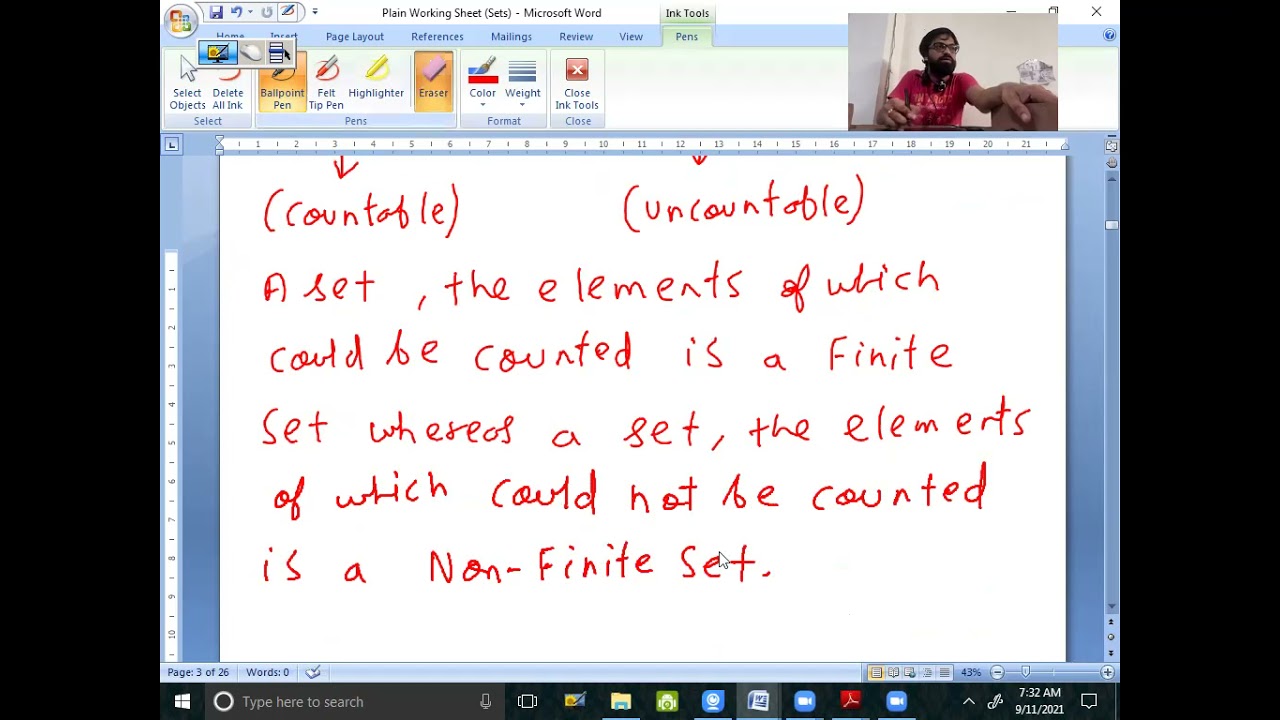 Plain Working Sheet (Sets) - Microsoft Word
Ink Tools
Home Insert Page Layout References Mailings Review View Pens
Select Objects
Delete All Ink
Ballpoint Pen
Felt Tip Pen
Highlighter
Eraser
Color
Weight
Close Ink Tools
Select Pens Format Close
1 2 3 4 5 6 7 8 9 10 11 12 13 14 15 16 17 18 19 20 21
(countable) (uncountable)
A set, the elements of which
could be counted is a Finite
Set whereas a set, the elements
of which could not be counted
is a Non-Finite Set.
1
2
3
4
5
6
7
8
9
10
Page: 3 of 26 Words: 0 43%
Type here to search
7:32 AM
9/11/2021